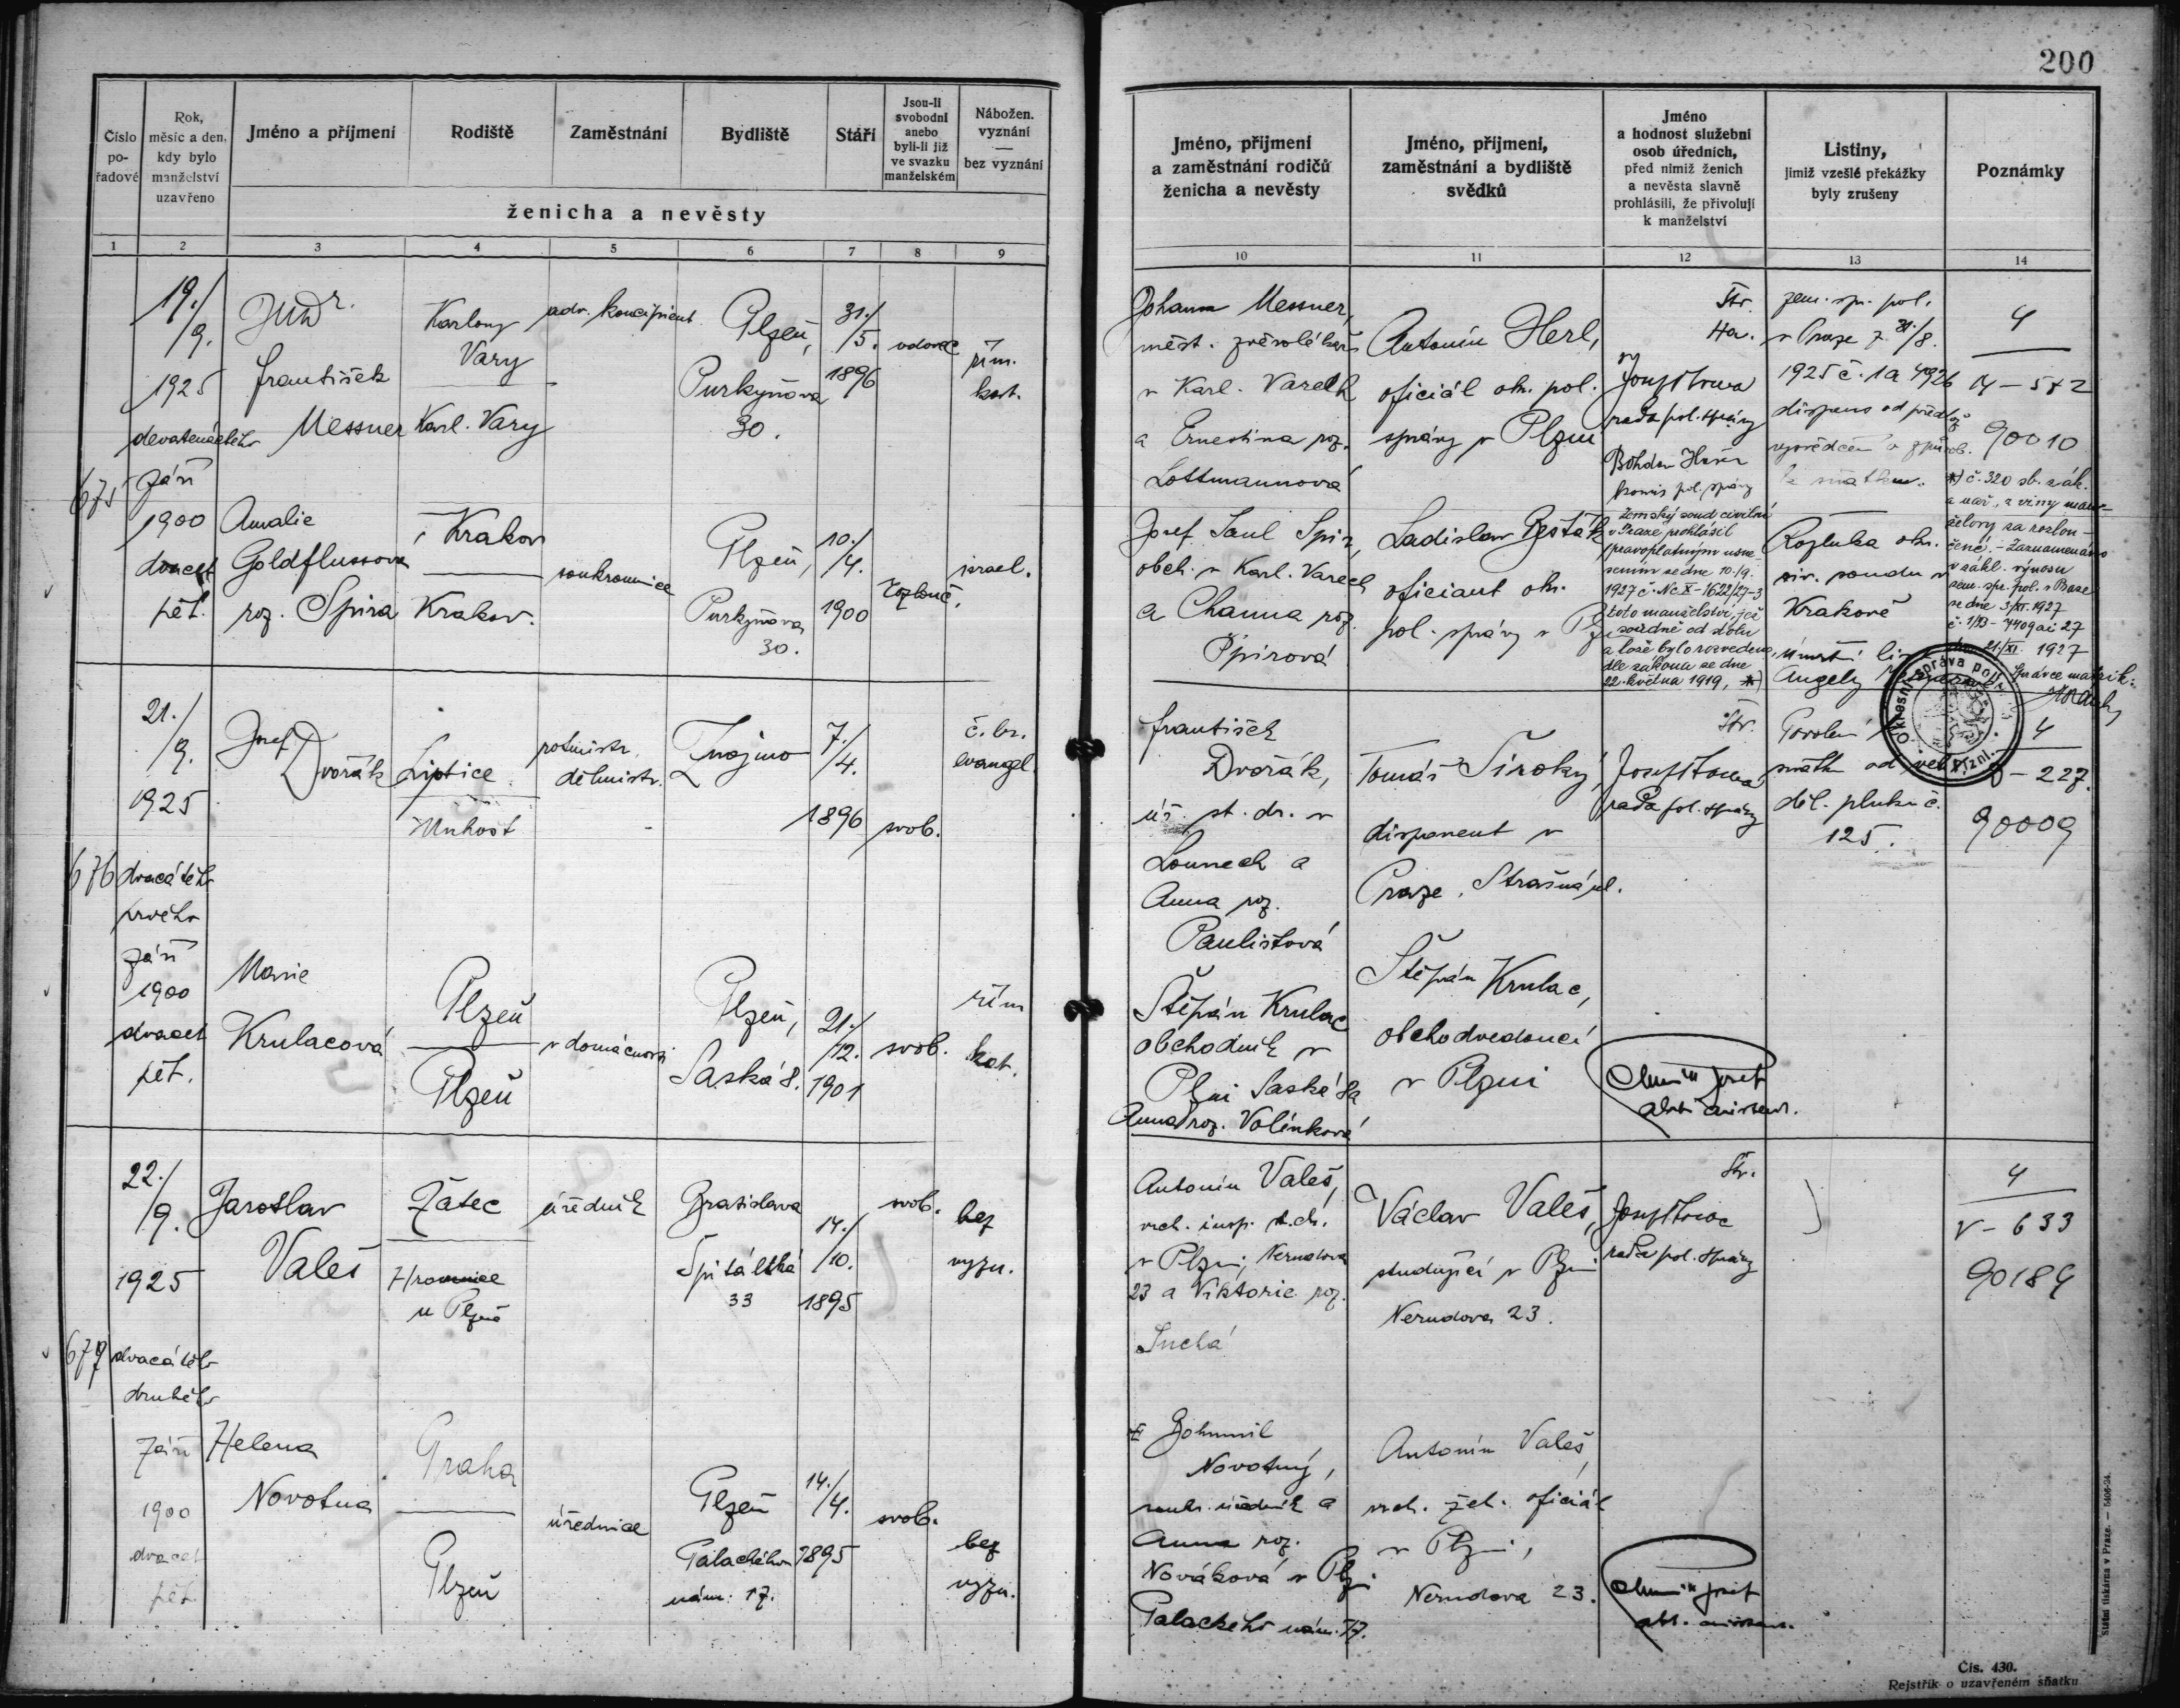 200
Číslo
po-
řadové
Rok,
měsíc a den,
kdy bylo
manželství
uzavřeno
Jméno a příjmení
Rodiště
Zaměstnání
Bydliště
Stáří
Jsou-li
svobodni
anebo
byli-li již
ve svazku
manželském
Nábožen.
vyznání
—
bez vyznání
ženicha a nevěsty
Jméno, příjmení
a zaměstnání rodičů
ženicha a nevěsty
Jméno, příjmení,
zaměstnání a bydliště
svědků
Jméno
a hodnost služební
osob úředních,
před nimiž ženich
a nevěsta slavně
prohlásili, že přivolují
k manželství
Listiny,
jimiž vzešlé překážky
byly zrušeny
Poznámky
1 2 3 4 5 6 7 8 9
10 11 12 13 14
675
19./
9.
1925
devatenáctého
září
1900
dvacet
pět.
JUDr.
František
Messner
Karlovy
Vary
Karl. Vary
adv. koncipient
Plzeň,
Purkyňova
30.
31./
/5.
1896
vdovec
řím.
kat.
Amalie
Goldflussova
roz. Spira
Krakov
Krakov.
soukromnice
Plzeň,
Purkyňova
30.
10./
/4.
1900
rozlouč.
israel.
Johann Messner,
měst. zvěrolékař
v Karl. Varech
a Ernestina roz.
Lottmannová
Josef Saul Spir,
obch. v Karl. Varech
a Channa roz.
Špirová
Antonín Herl,
oficiál okr. pol.
správy v Plzni
Ladislav
oficiant okr.
pol. správy v Plz
rada pol. správy
Bohdan
komis. pol. správy
Zemský soud civilní
v Praze prohlásil
pravoplatným usne
sením ze dne 10./9.
1927 č. Nc X-1622/27-3
toto manželství, jež
soudně od stolu
a lože bylo rozvedeno,
dle zákona ze dne
22. května 1919, *)
zem. spr. pol.
v Praze z 31./8.
1925 č. 1a 4926
dispens od předlož
k sňatku.
Rozluka okr.
civ. soudu v
Krakově
úmrtní
Angely
4
M-572
90010
*) č. 320 sb. zák.
a nař., z viny man-
želovy za rozlou-
čené. - Zaznamenáno
v zákl. výnosu
zem. spr. pol. v Praze
ze dne 3/XI. 1927
21./XI. 1927
Správce matrik:
676
21./
9.
1925
dvacátého
prvého
září
1900
dvacet
pět.
Josef
Dvořák
Liptice
rotmistr.
délmistr.
Znojmo
7./
/4.
1896
svob.
č. br.
evangel
Marie
Krulacová
Plzeň
Plzeň
v domácnosti
Plzeň,
Saská 8.
21./
/12.
1901
svob.
řím
kat.
František
Dvořák,
úř. st. dr. v
Lounech a
Anna roz.
Paulistová
Štěpán Krulac
obchodník v
Plzni Saská 8a
Anna roz. Volínková
Tomáš Široký,
disponent v
Praze. Strašná ul.
Štěpán Krulac,
obchodvedoucí
v Plzni
rada pol. správy
Povolení
sňatku od vel.
děl. pluku č.
125.
4
D-227.
90009
677
22./
9.
1925
dvacátého
druhého
září
1900
dvacet
pět
Jaroslav
Valeš
Žatec
Hromnice
u Plzně
úředník
Bratislava
Špitálská
33
14./
/10.
1895
svob.
bez
vyzn.
Helena
Novotna
Praha
Plzeň
úřednice
Plzeň
Palackého
nám. 17.
14./
/4.
1895
svob.
bez
vyzn.
Antonín Valeš,
vrch. insp. st. dr.
v Plzni, Nerudova
23 a Viktorie roz.
Suchá
Bohumil
Novotný,
soukr. úředník a
Anna roz.
Nováková v Plz
Palackého nám. 17.
Václav Valeš,
studující v Plzni
Nerudova 23.
Antonín Valeš,
vrch. žel. oficiál
v Plzni,
Nerudova 23.
rada pol. správy
4
V-633
90184
Státní tiskárna v Praze. — 5406-24.
Čís. 430.
Rejstřík o uzavřeném sňatku